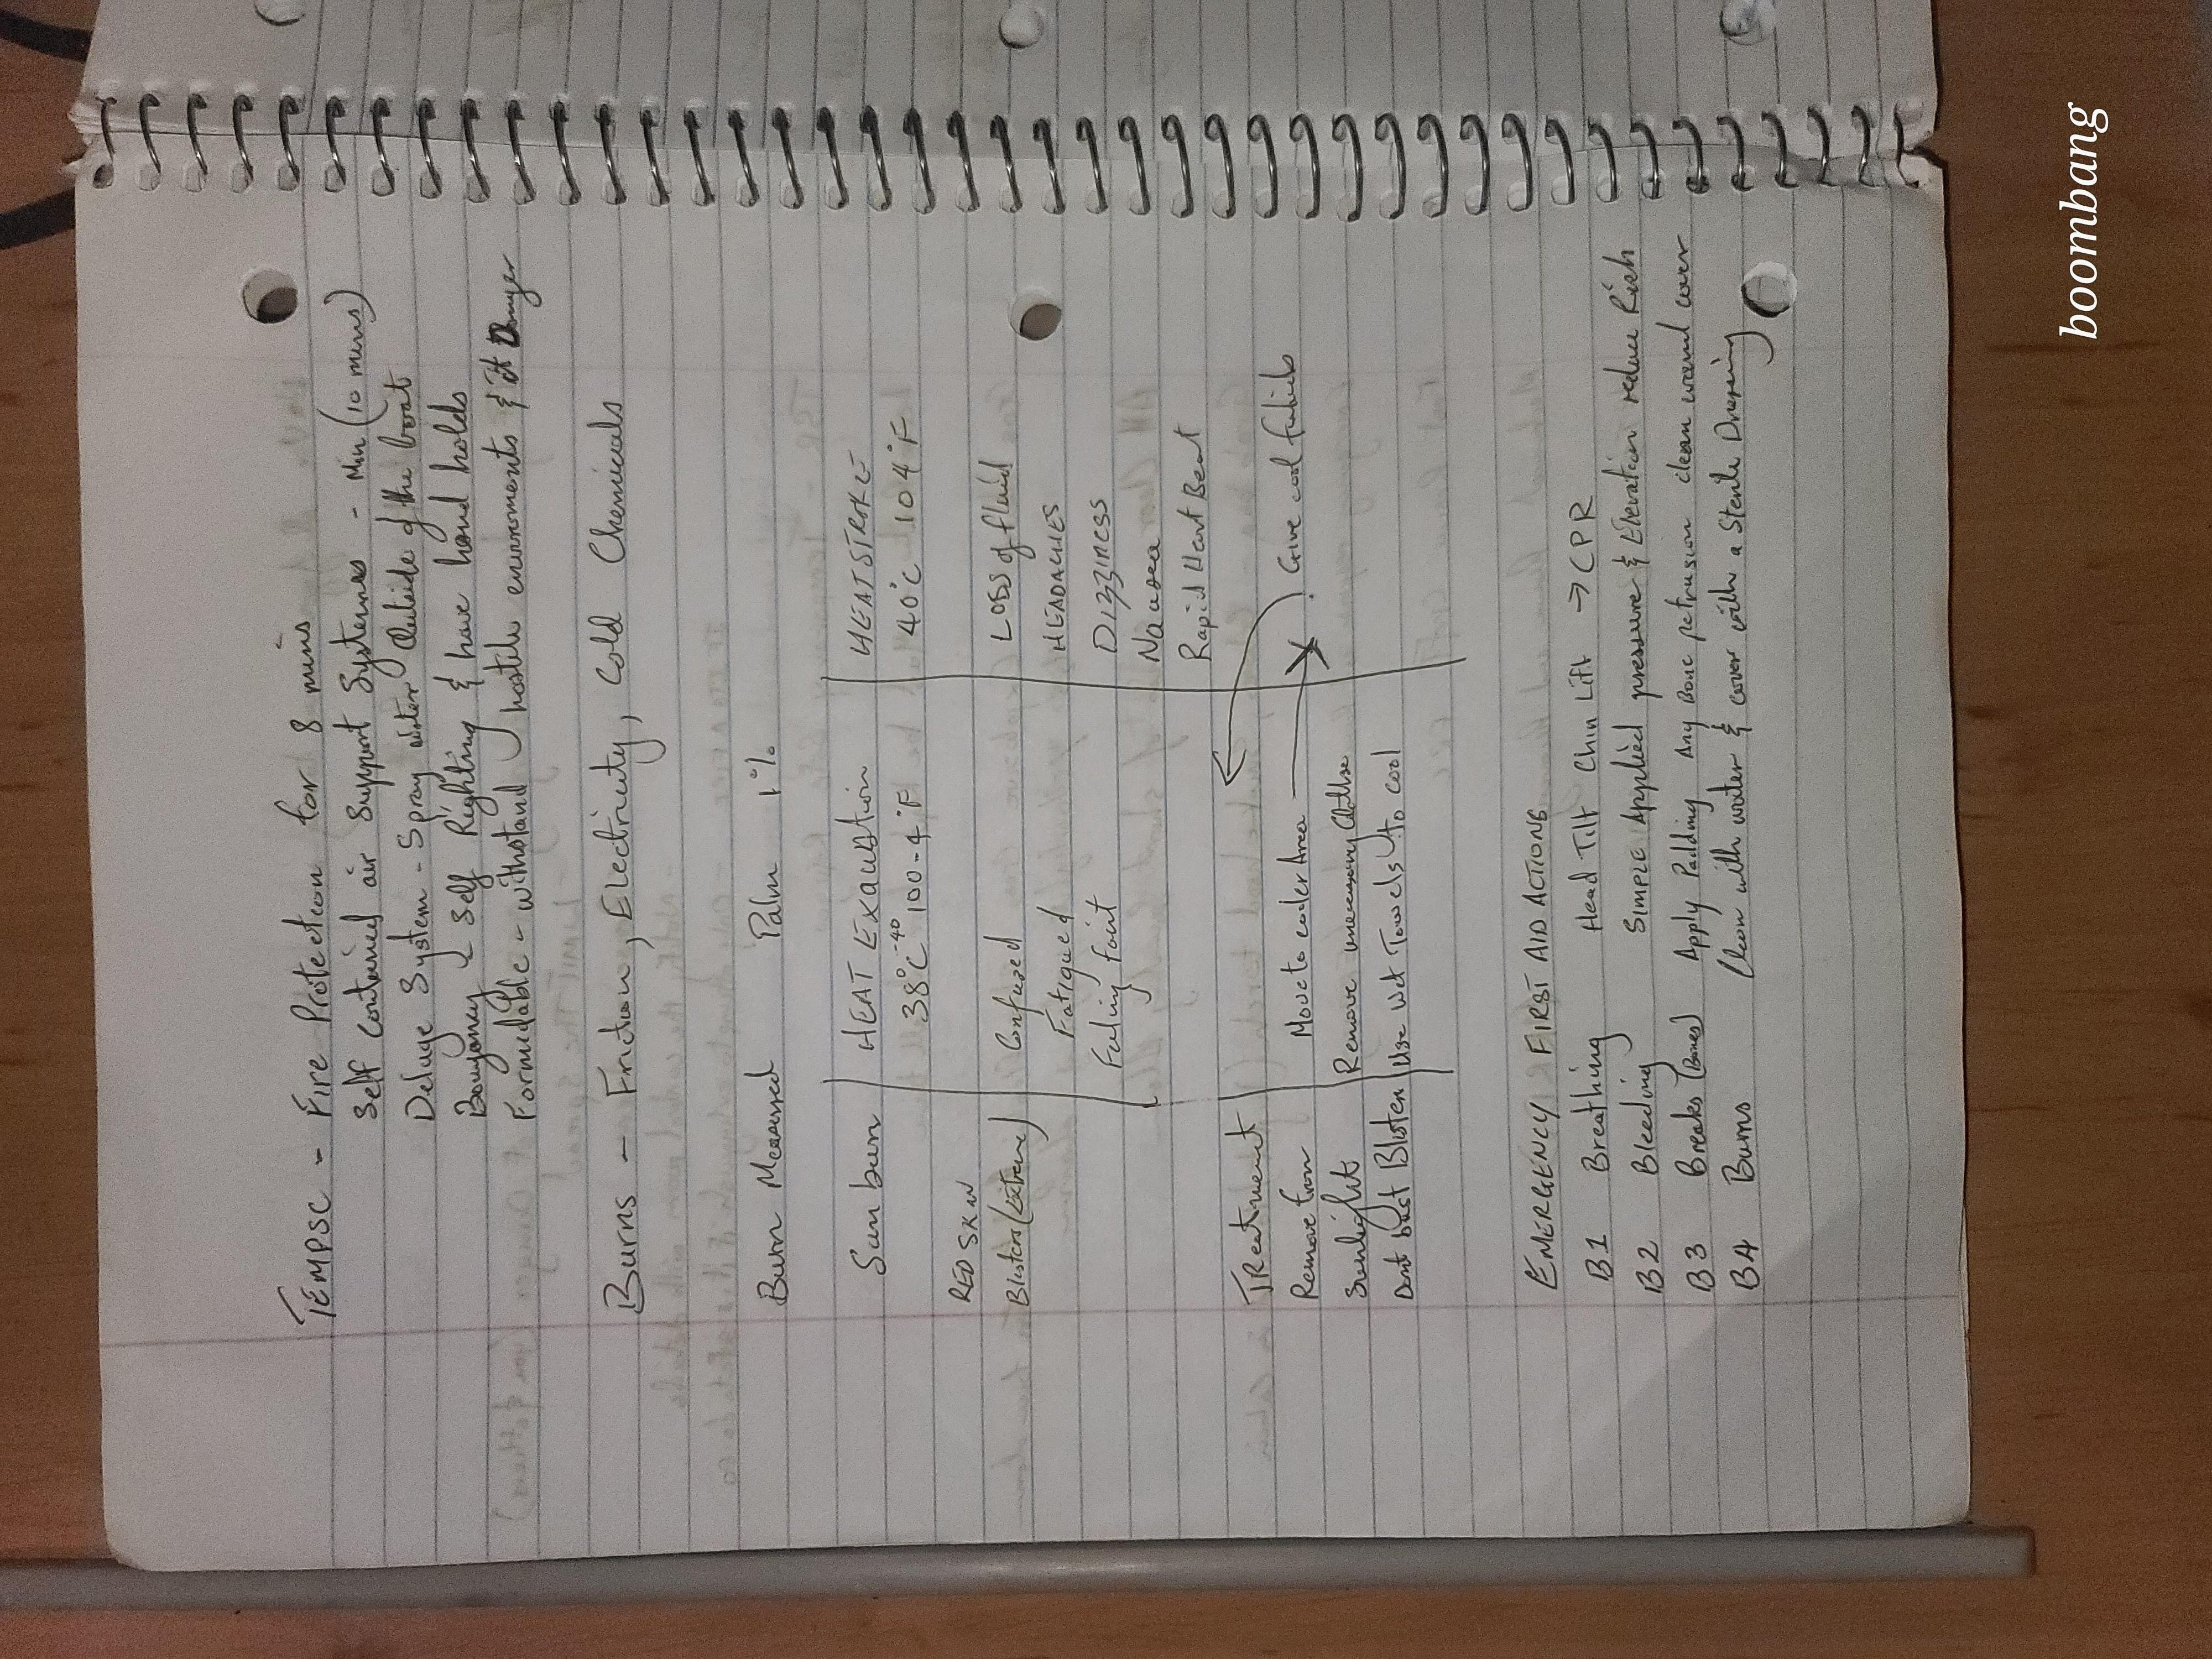 TEMPSC - Fire Protection for 8 mins
Self Contained air Support Systems - Min (10 mins)
Deluge System - Spray water Outside of the boat
Bouyancy & Self Righting & have hand holds
Formidable - withstand hostile enviroments & it Danger
Burns - Friction, Electricity, Cold Chemicals
Burn Measured Palm 1%
Sun burn HEAT EXAUSTION HEATSTROKE
38°C-40 100-4°F 40°C 104°F
RED SKIN Confused Loss of fluid
Blisters (extreme) Fatigued HEADACHES
Feeling Faint DIZZINESS
Nausea
Rapid Heart Beat
TReatment
Remove from Move to cooler Area Give cool fluids
Sunlight Remove unecessary Clothse
Dont bust Blisters Use Wet Towels to cool
EMERGENCY FIRST AID ACTIONS
B1 Breathing Head Tilt Chin Lift → CPR
B2 Bleeding SIMPLE Applied pressure & Elevation reduce Risk
B3 Breaks (Bones) Apply Padding Any Bone petrusion clean wound cover
B4 Burns Clean with water & cover with a Sterile Dressing
boombang